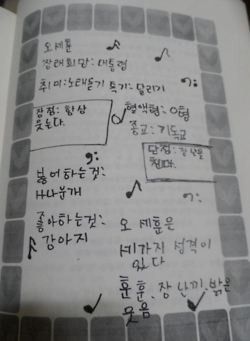 오세훈
장래희망: 대통령
취미: 노래듣기 특기: 달리기
장점: 항상
웃는다.
혈액형: O형
종교: 기독교
단점: 장난을
친다.
싫어하는것:
좋아하는것:
강아지
오 세훈은
세가지 성격이
있다
훈훈, 장난끼, 밝은
웃음